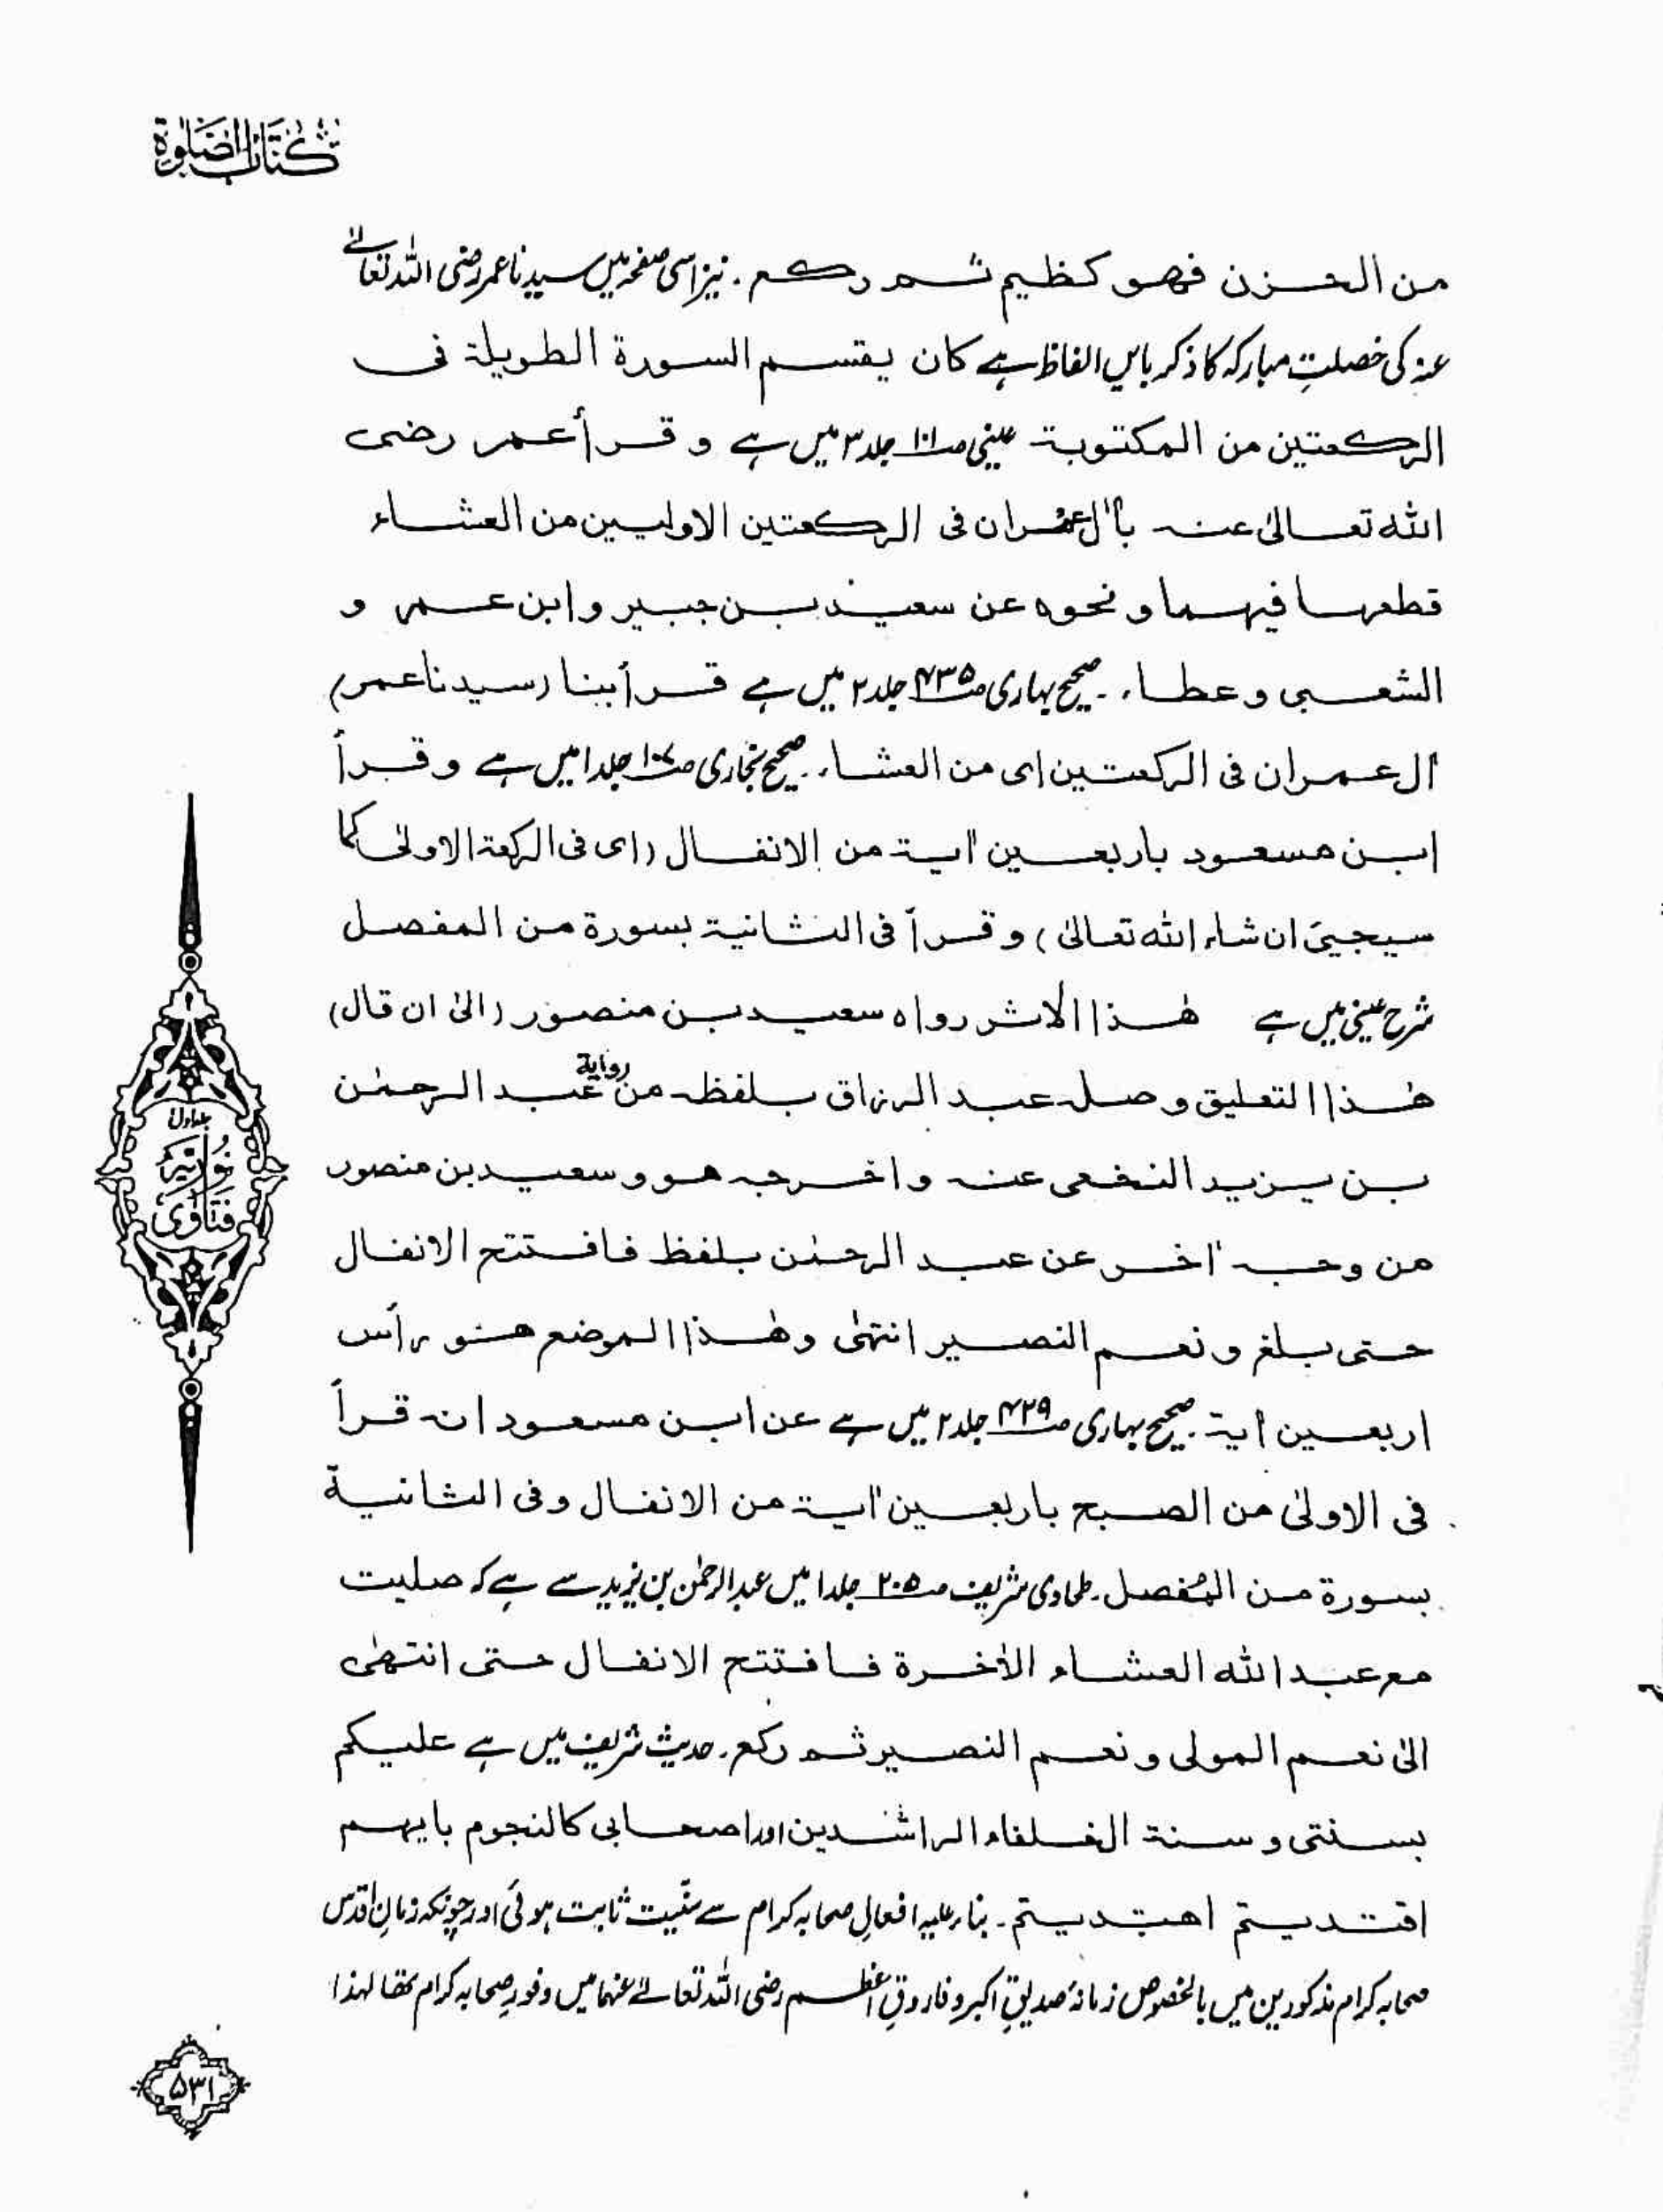 كتاب الصلوة
من الحزن فهو كظيم ثم ركع ۔ نیز اسی صفحہ میں سیدنا عمر رضی اللہ تعالےٰ
عنہ کی خصلتِ مبارکہ کا ذکر بایں الفاظ ہے كان يقسم السورة الطويلة فى
الركعتين من المكتوبة عینی ص۱۰۱ جلد ۳ میں ہے و قرأ عمر رضى
الله تعالىٰ عنه بآل عمران فى الركعتين الاوليين من العشاء
قطعها فيهما و نحوه عن سعيد بن جبير و ابن عمر و
الشعبى و عطاء ۔ صحیح بہاری ص۴۳۵ جلد ۲ میں ہے قرأ بنا (سيدنا عمر)
آل عمران فى الركعتين اى من العشاء ۔ صحیح بخاری ص۱۰۷ جلد ۱ میں ہے و قرأ
ابن مسعود باربعين اٰية من الانفال (اى فى الركعة الاولىٰ كما
سيجيئ ان شاء الله تعالىٰ) و قرأ فى الثانية بسورة من المفصل
شرح عینی میں ہے هٰذا الاثر رواه سعيد بن منصور (الىٰ ان قال)
هٰذا التعليق وصله عبد الرزاق بلفظه من رواية عبد الرحمٰن
بن يزيد النخعى عنه و اخرجه هو و سعيد بن منصور
من وجه اٰخر عن عبد الرحمٰن بلفظ فافتتح الانفال
حتى بلغ و نعم النصير انتهىٰ و هٰذا الموضع هو رأس
اربعين اٰية ۔ صحیح بہاری ص۴۲۹ جلد ۲ میں ہے عن ابن مسعود انه قرأ
فى الاولىٰ من الصبح باربعين اٰية من الانفال وفى الثانية
بسورة من المفصل ۔ طحاوی شریف ص۲۰۵ جلد ۱ میں عبدالرحمٰن بن یزید سے ہے کہ صليت
مع عبد الله العشاء الاٰخرة فافتتح الانفال حتى انتهىٰ
الىٰ نعم المولى و نعم النصير ثم ركع ۔ حدیث شریف میں ہے عليكم
بسنتى و سنة الخلفاء الراشدين اور اصحابى كالنجوم بايهم
اقتديتم اهتديتم ۔ بناء علیہ افعالِ صحابہ کرام سے سنّیت ثابت ہوئی اور چونکہ زمانِ اقدس
صحابہ کرام مذکورین میں بالخصوص زمانۂ صدیقِ اکبر و فاروقِ اعظم رضی اللہ تعالےٰ عنہما میں وفورِ صحابہ کرام تھا لہٰذا
جلد اول
نوریہ
فتاوٰی
۵۳۱